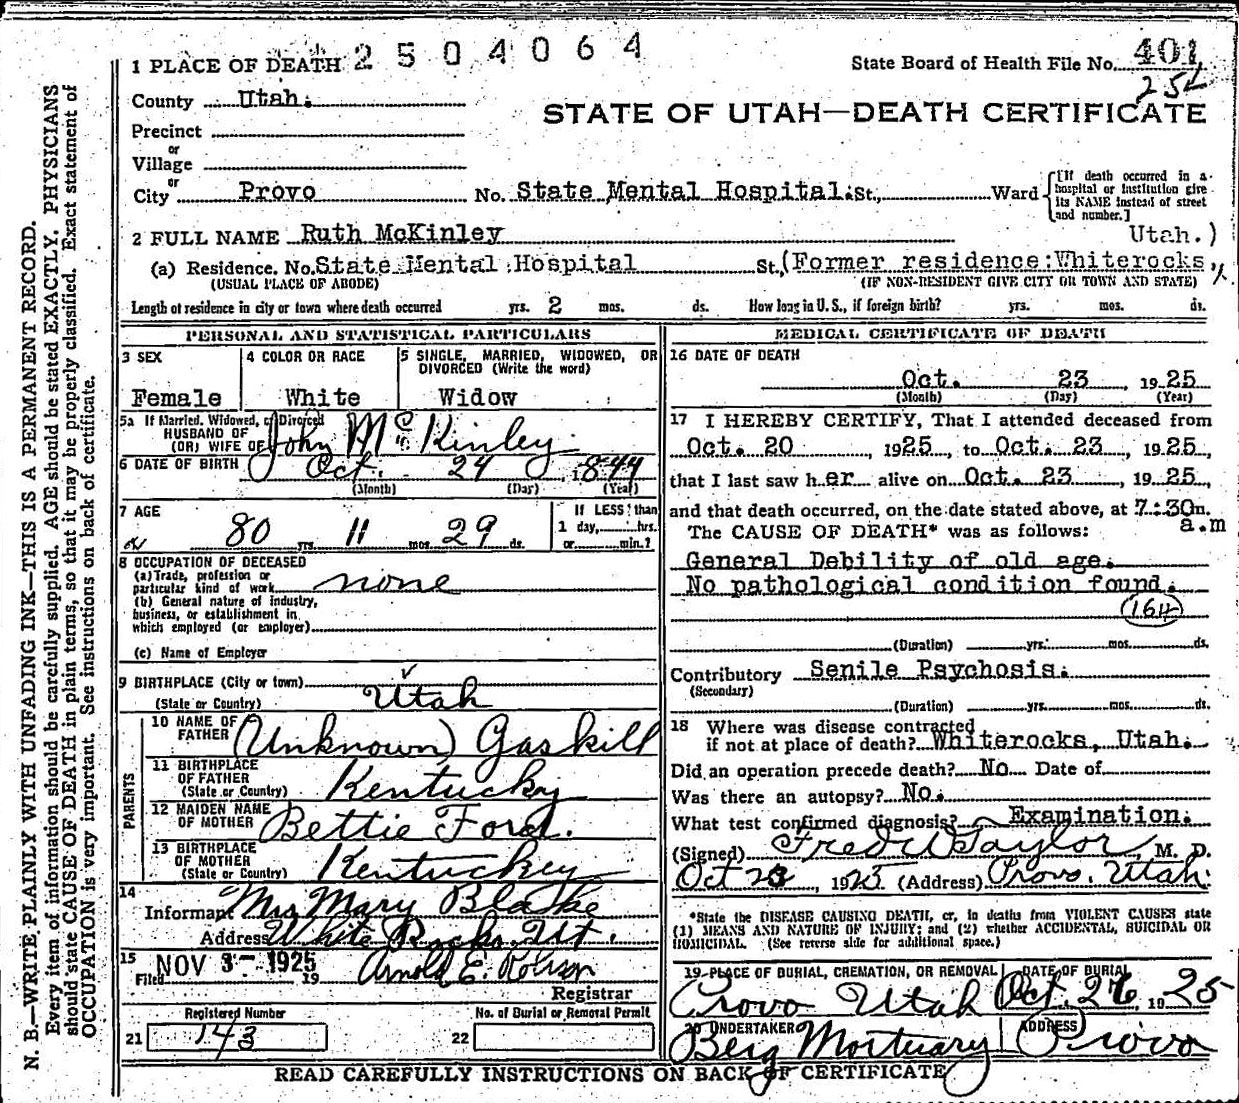 2504064
1 PLACE OF DEATH
State Board of Health File No. 401
254
County Utah.
STATE OF UTAH—DEATH CERTIFICATE
Precinct
or
Village
or
City Provo No. State Mental Hospital. St., Ward
[If death occurred in a hospital or institution give its NAME instead of street and number.]
2 FULL NAME Ruth McKinley
Utah.)
(a) Residence. No. State Mental Hospital St., (Former residence: Whiterocks,
(USUAL PLACE OF ABODE) (IF NON-RESIDENT GIVE CITY OR TOWN AND STATE)
Length of residence in city or town where death occurred yrs. 2 mos. ds. How long in U.S., if foreign birth? yrs. mos. ds.
PERSONAL AND STATISTICAL PARTICULARS
3 SEX
Female
4 COLOR OR RACE
White
5 SINGLE, MARRIED, WIDOWED, OR
DIVORCED (Write the word)
Widow
5a If Married, Widowed, or Divorced
HUSBAND OF
(OR) WIFE OF John McKinley
6 DATE OF BIRTH Oct. 24 1844
(Month) (Day) (Year)
7 AGE
80 yrs. 11 mos. 29 ds.
If LESS than
1 day, hrs.
or min.?
8 OCCUPATION OF DECEASED
(a) Trade, profession or
particular kind of work none
(b) General nature of industry,
business, or establishment in
which employed (or employer)
(c) Name of Employer
9 BIRTHPLACE (City or town)
(State or Country) Utah
PARENTS
10 NAME OF
FATHER (Unknown) Gaskill
11 BIRTHPLACE
OF FATHER
(State or Country) Kentucky
12 MAIDEN NAME
OF MOTHER Bettie Ford.
13 BIRTHPLACE
OF MOTHER
(State or Country) Kentuckey
14
Informant Mrs Mary Blake
Address White Rocks, Ut.
15
Filed NOV 3 - 1925 19 Arnold E. Robison
Registrar
Registered Number
21 143
No. of Burial or Removal Permit
22
MEDICAL CERTIFICATE OF DEATH
16 DATE OF DEATH
Oct. 23, 1925
(Month) (Day) (Year)
17 I HEREBY CERTIFY, That I attended deceased from
Oct. 20, 1925, to Oct. 23, 1925,
that I last saw her alive on Oct. 23, 1925,
and that death occurred, on the date stated above, at 7:30 m.
a.m
The CAUSE OF DEATH* was as follows:
General Debility of old age.
No pathological condition found.
164
(Duration) yrs. mos. ds.
Contributory Senile Psychosis.
(Secondary)
(Duration) yrs. mos. ds.
18 Where was disease contracted
if not at place of death? Whiterocks, Utah.
Did an operation precede death? No Date of
Was there an autopsy? No.
What test confirmed diagnosis? Examination.
(Signed) Fred W Taylor, M. D.
Oct 23, 1925 (Address) Provo, Utah.
*State the DISEASE CAUSING DEATH, or, in deaths from VIOLENT CAUSES state
(1) MEANS AND NATURE OF INJURY; and (2) whether ACCIDENTAL, SUICIDAL OR
HOMICIDAL. (See reverse side for additional space.)
19 PLACE OF BURIAL, CREMATION, OR REMOVAL
Provo Utah
DATE OF BURIAL
Oct. 26, 1925
20 UNDERTAKER
Berg Mortuary
ADDRESS
Provo
READ CAREFULLY INSTRUCTIONS ON BACK OF CERTIFICATE
N. B.—WRITE PLAINLY WITH UNFADING INK—THIS IS A PERMANENT RECORD.
Every item of information should be carefully supplied. AGE should be stated EXACTLY. PHYSICIANS
should state CAUSE OF DEATH in plain terms, so that it may be properly classified. Exact statement of
OCCUPATION is very important. See instructions on back of certificate.